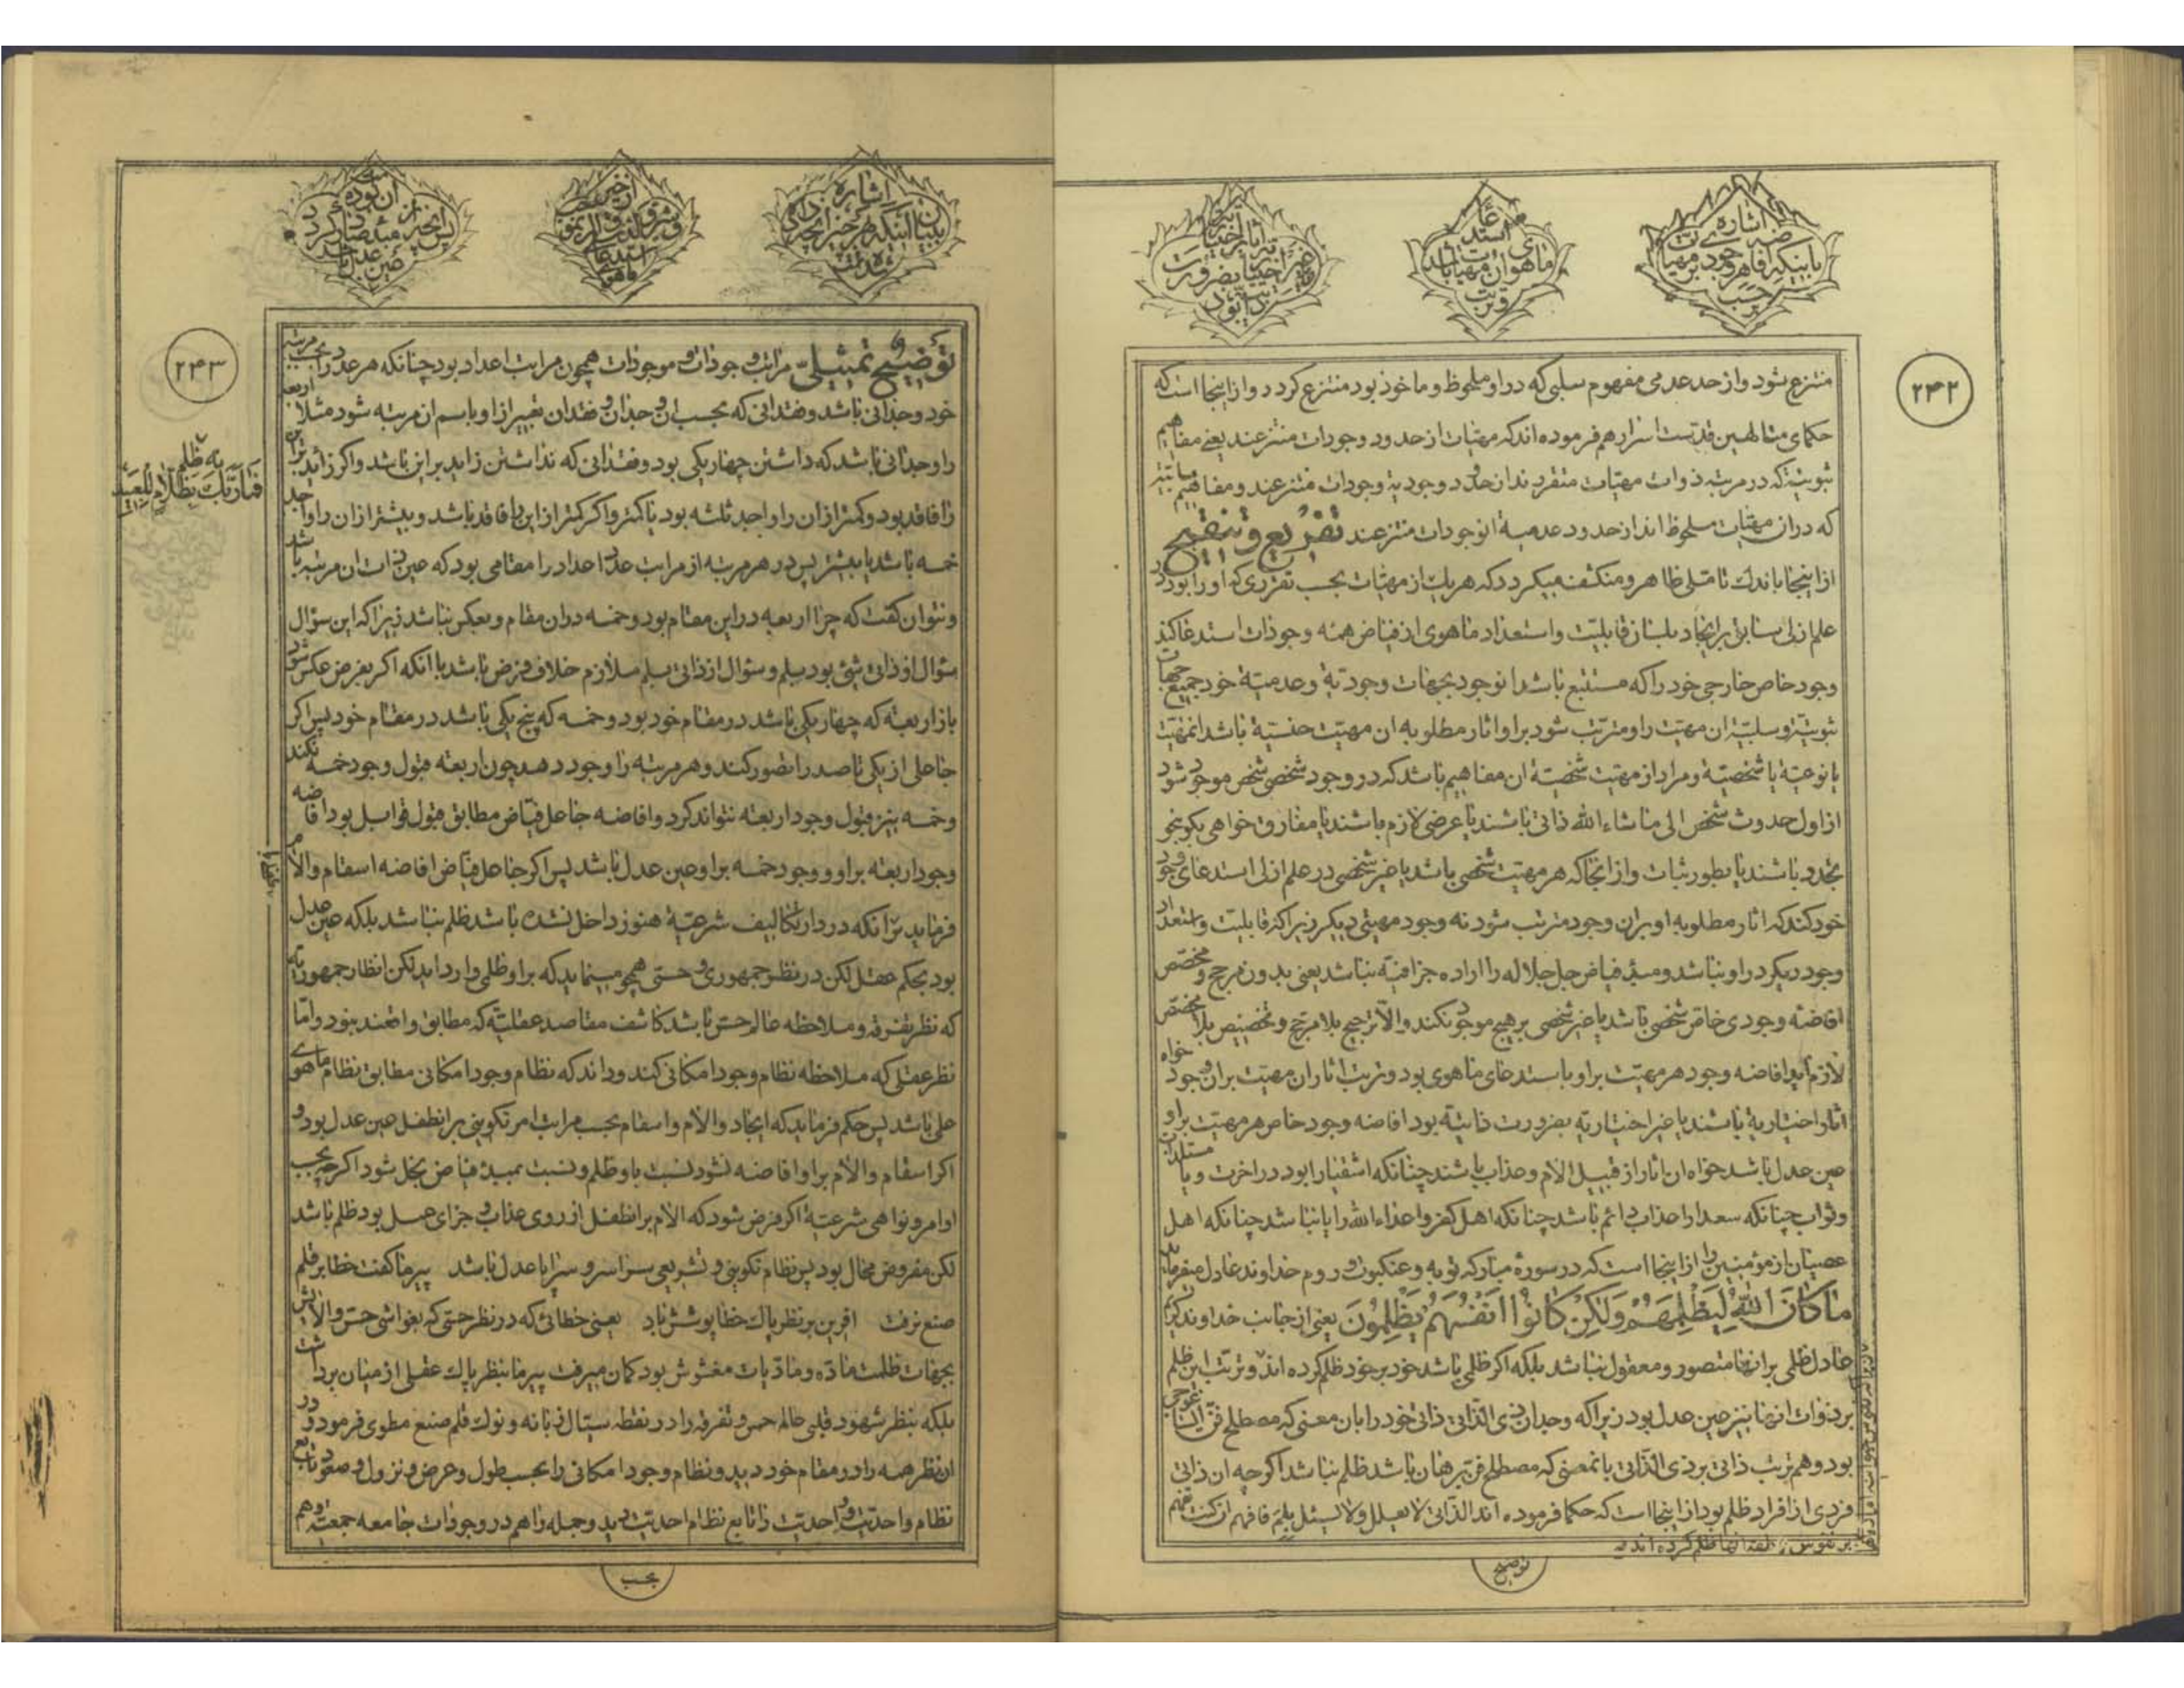 ۲۴۲
اشاره
باینکه افاضه وجود بر مهیات
بحسب
استدعای
ماهوی ان مهیات باشد
و ترتب
غیر اختیاریه بضرورت
ذاتیه بود
منتزع شود و از حد عدمی مفهوم سلبی که در او ملحوظ و ماخوذ بود منتزع کردد و از اینجا است که
حکمای متالهین قدست اسرارهم فرموده اند که مهیات از حدود وجودات منتزعند یعنی مفاهیم
ثبوتیه که در مرتبه ذوات مهیات متقررند از حدود وجودیه وجودات منتزعند و مفاهیم
که در ان مهیات ملحوظ اند از حدود عدمیه انوجودات منتزعند تفریع و تنقیح
از اینجا باندک تاملی ظاهر و منکشف میکردد که هر یک از مهیات بحسب تقرری که او را بود در
علم ازلی سابق بر ایجاد بلسان قابلیت و استعداد ماهوی از فیاض همه وجودات استدعا کند
وجود خاص خارجی خود را که مستتبع باشد انوجود بجهات وجودیه و عدمیه خود جمیع جهات
ثبوتیه و سلبیه ان مهیت را و مترتب شود بر او اثار مطلوبه ان مهیت جنسیه باشد انمهیت
یا نوعیه یا شخصیه و مراد از مهیت شخصیه ان مفاهیم باشد که در وجود شخصی شخص موجود شود
از اول حدوث شخص الی ماشاء الله ذاتی باشند یا عرضی لازم باشند یا مفارق خواهی بکو بنحو
تجدد باشند یا بطور ثبات و از انجا که هر مهیت شخصی باشد یا غیر شخصی در علم ازلی استدعای وجود
خود کند که اثار مطلوبه او بران وجود مترتب شود نه وجود مهیتی دیکر زیرا که قابلیت و استعداد
وجود دیکر در او نباشد و مبدء فیاض جل جلاله را اراده جزافیه نباشد یعنی بدون مرجح و مخصص
افاضه وجودی خاص شخصی باشد یا غیر شخصی بر هیچ موجود نکند والا ترجیح بلا مرجح و تخصیص بلا مخصص
لازم اید افاضه وجود هر مهیت بر او باستدعای ماهوی بود و ترتب اثار ان مهیت بران وجود خواه
اثار اختیاریه باشند یا غیر اختیاریه بضرورت ذاتیه بود افاضه وجود خاص هر مهیت بر او
عین عدل باشد خواه ان اثار از قبیل الام و عذاب باشند چنانکه اشقیا را بود در اخرت و یا
و ثواب چنانکه سعدا را عذاب دائم باشد چنانکه اهل کفر و اعداء الله را یا نباشد چنانکه اهل
عصیان از مؤمنین را از اینجا است که در سوره مبارکه توبه و عنکبوت و روم خداوند عادل میفرماید
ماکان الله لیظلمهم ولکن کانوا انفسهم یظلمون یعنی از جانب خداوند
عادل ظلمی بر انها متصور و معقول نباشد بلکه اکر ظلمی باشد خود بر خود ظلم کرده اند و ترتب این ظلم
بر ذوات انها نیز عین عدل بود زیرا که وجدان ذی الذاتی ذاتی خود را بان معنی که مصطلح فن ایساغوجی
بود و هم ترتب ذاتی بر ذی الذاتی بانمعنی که مصطلح فن برهان باشد ظلم نباشد اکرچه ان ذاتی
فردی از افراد ظلم بود از اینجا است که حکما فرموده اند الذاتی لا یعلل ولا یسئل بلم فافهم ان کنت تفهم
توضیح
۲۴۳
اشاره
شده است
پس انچه از مبدء صادر کردد
عین عدل باشد
به ظلم
فما ربک بظلام للعبید
توضیح تمثیلی مراتب وجودات و موجودات همچون مراتب اعداد بود چنانکه هر عدد را بحسب مرتبه
خود وجدانی باشد و فقدانی که بحسب ان وجدان و فقدان تعبیر از او باسم ان مرتبه شود مثلا اربعه
را وجدانی باشد که داشتن چهار یکی بود و فقدانی که نداشتن زاید بر این باشد و اکر زاید بر این
را فاقد بود و کمتر از ان را واجد ثلثه بود یا کمتر و اکر کمتر از این را فاقد باشد و بیشتر از ان را واجد
خمسه باشد یا بیشتر پس در هر مرتبه از مراتب عدد اعداد را مقامی بود که عین ذات ان مرتبه باشد
و نتوان کفت که چرا اربعه در این مقام بود و خمسه در ان مقام و بعکس نباشد زیرا که این سؤال
سؤال از ذاتی شیء بود بلم و سؤال از ذاتی بلم ملازم خلاف فرض باشد با انکه اکر بفرض عکس شود
باز اربعه که چهار یکی باشد در مقام خود بود و خمسه که پنج یکی باشد در مقام خود پس اکر
جاعلی از یکی تا صد را تصور کند و هر مرتبه را وجود دهد چون اربعه قبول وجود خمسه نکند
و خمسه نیز قبول وجود اربعه نتواند کرد و افاضه جاعل فیاض مطابق قبول قوابل بود افاضه
وجود اربعه بر او و وجود خمسه بر او عین عدل باشد پس اکر جاعل فیاض افاضه اسقام و الام
فرماید بر انکه در دار تکالیف شرعیه هنوز داخل نشده باشد ظلم نباشد بلکه عین عدل
بود بحکم عقل لکن در نظر جمهوری و حسی همچو مینماید که بر او ظلمی وارد اید لکن انظار جمهوریه
که نظر تفرقه و ملاحظه عالم حس باشد کاشف مقاصد عقلیه که مطابق واقعند نبود و اما
نظر عقلی که ملاحظه نظام وجود امکانی کند و داند که نظام وجود امکانی مطابق نظام ماهوی
علمی باشد پس حکم فرماید که ایجاد و الام و اسقام بحسب مراتب امر تکوینی بر انطفل عین عدل بود و
اکر اسقام و الام بر او افاضه نشود نسبت باو ظلم و نسبت بمبدء فیاض بخل شود اکرچه بحسب
اوامر و نواهی شرعیه اکر فرض شود که الام بر انطفل از روی عذاب و جزای عمل بود ظلم باشد
لکن مفروض محال بود پس نظام تکوینی و تشریعی سراسر و سراپا عدل باشد پیر ما کفت خطا بر قلم
صنع نرفت افرین بر نظر پاک خطا پوشش باد یعنی خطائی که در نظر حسی که بغواشی حس و الایش
بجهات ظلمت ماده و مادیات مغشوش بود کمان میرفت پیر ما بنظر پاک عقلی از میان برداشت
بلکه بنظر شهود قلبی عالم حس و تفرقه را در نقطه سیال زبانه و نوک قلم صنع مطوی فرمود و در
ان نظر همه را در مقام خود دید و نظام وجود امکانی را بحسب طول و عرض و نزول و صعود تابع
نظام واحدیت و واحدیت را تابع نظام احدیت دید و جمله را هم در وجودات جامعه جمعیه و هم
بحسب